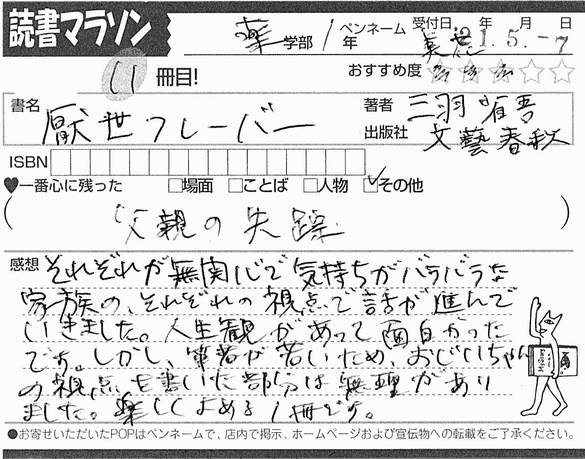 読書マラソン
薬学部 1年 ペンネーム 受付日 年 月 日
21.5.-7
11冊目!
おすすめ度 ☆☆☆☆☆
書名 厭世フレーバー
著者 三羽省吾
出版社 文藝春秋
ISBN
♥一番心に残った □場面 □ことば □人物 ☑その他
( 父親の失踪 )
感想 それぞれが無関心で気持ちがバラバラな
家族の、それぞれの視点で話が進んで
いきました。人生観があって面白かった
です。しかし、筆者が若いため、おじいちゃん
の視点を書いた部分は無理があり
ました。楽しくよめる1冊です。
●お寄せいただいたPOPはペンネームで、店内で掲示、ホームページおよび宣伝物への転載をご了承ください。